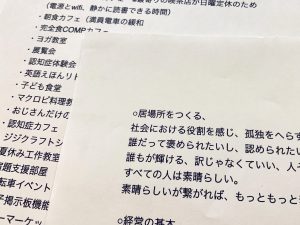 最寄りの喫茶店が日曜定休のため
(電源とwifi、静かに読書できる時間)
・朝食カフェ(満員電車の緩和
・完全食COMPカフェ
・ヨガ教室
・展覧会
・認知症体験会
・英語えほんリト
・子ども食堂
・マクロビ料理教
・おじさんだけの
・認知症カフェ
・ジジクラフトシ
夏休み工作教室
宿題支援部屋
転車イベント
子掲示板機能
ーマーケット
○居場所をつくる、
社会における役割を感じ、孤独をへらす
誰だって褒められたいし、認められたい
誰もが輝ける、訳じゃなくていい、人そ
すべての人は素晴らしい。
素晴らしいが繋がれば、もっともっと
○経営の基本